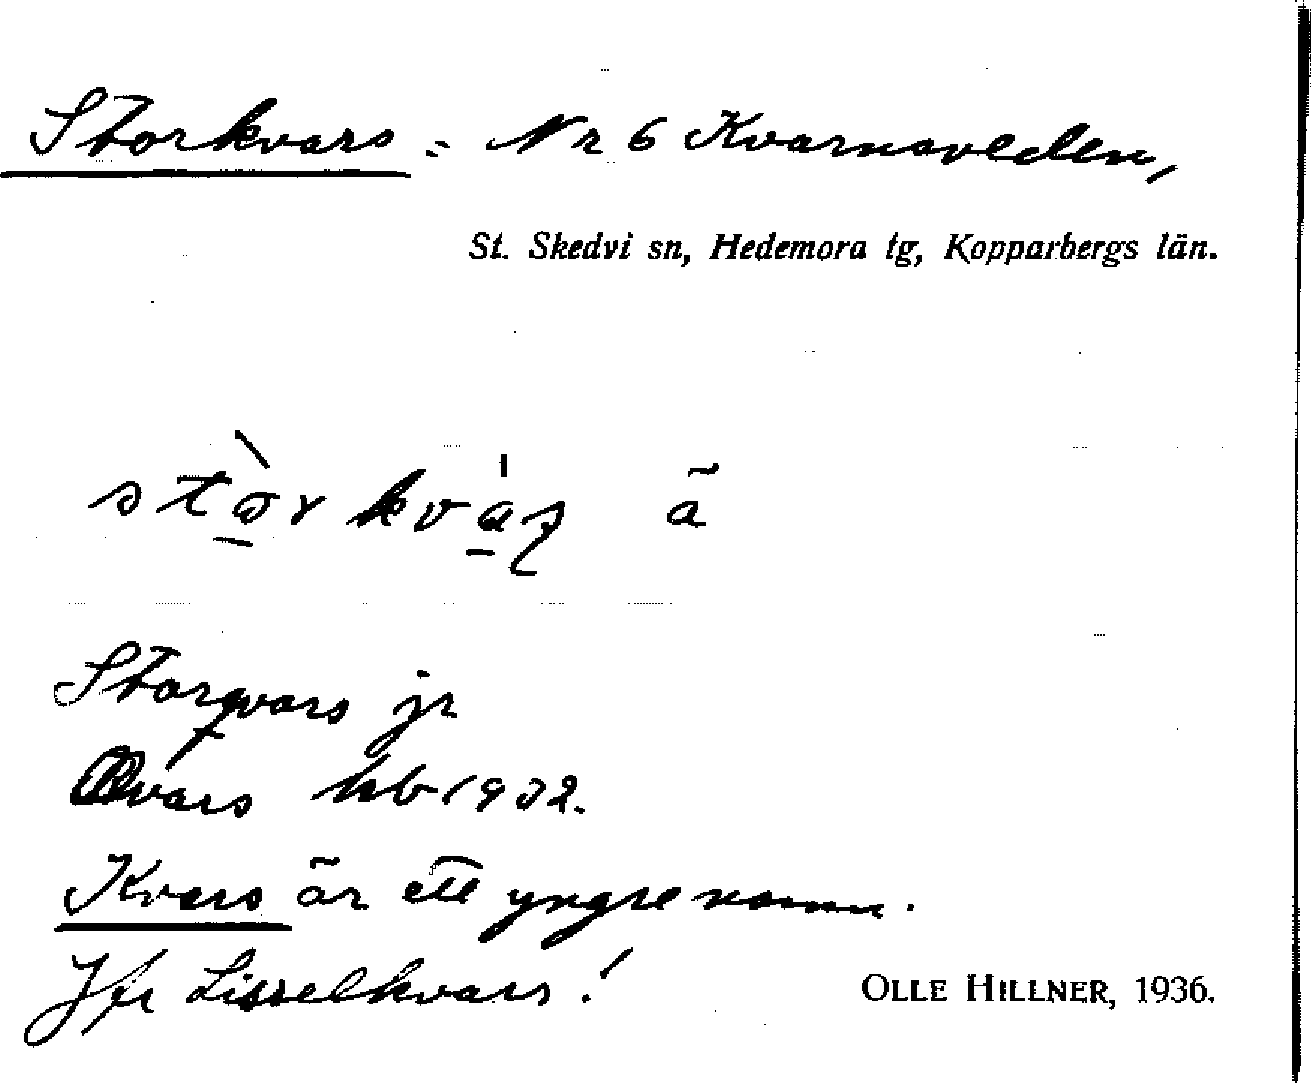 Storkvars = Nr 6 Kvarnsveden,
St. Skedvi sn, Hedemora tg, Kopparbergs län.
ä
Storqvars jr
Qvars hb 1932.
Kvars är ett yngre namn.
Jfr Lisselkvars!
OLLE HILLNER, 1936.